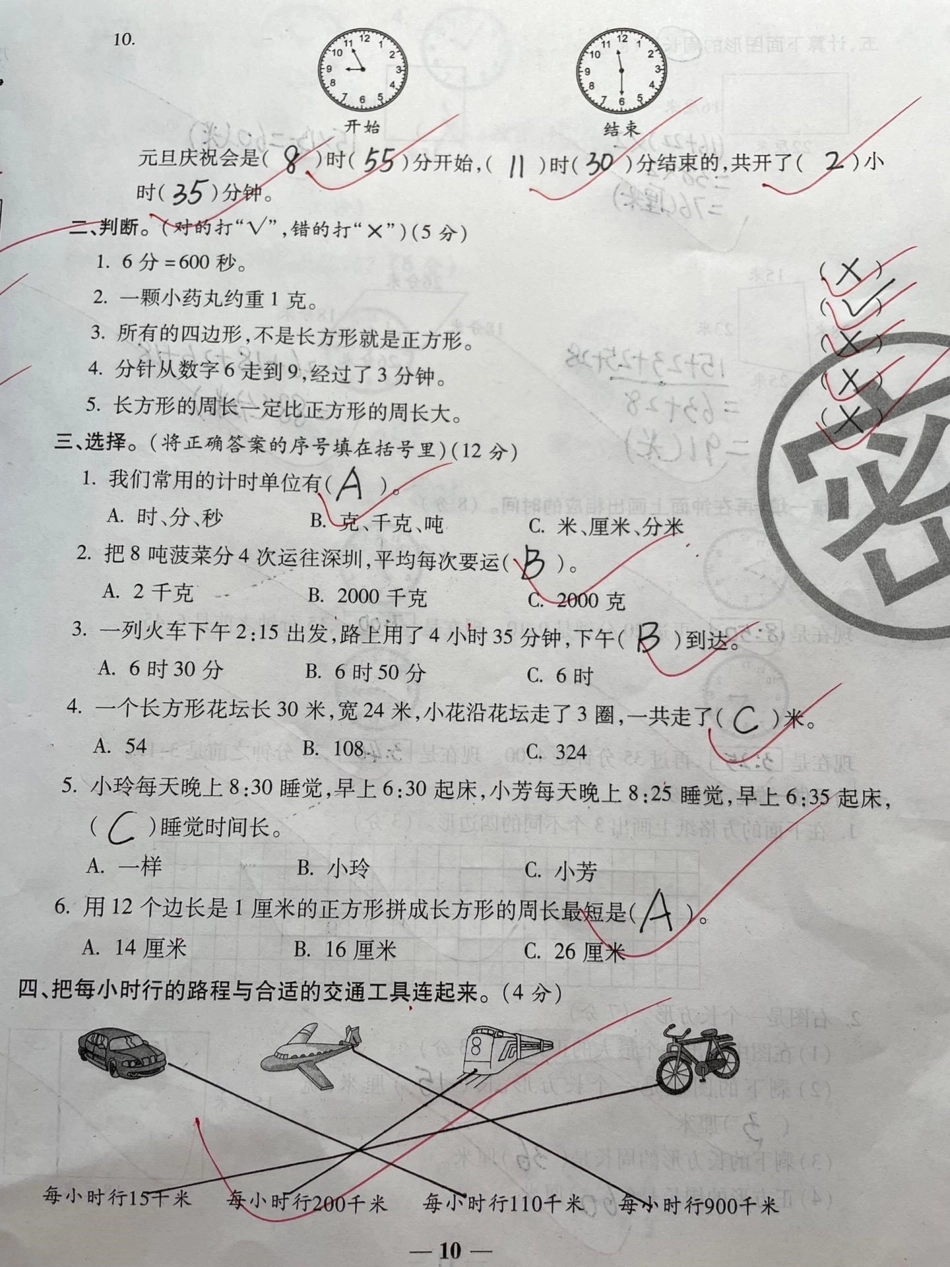 10.
开始 结束
元旦庆祝会是( 8 )时( 55 )分开始,( 11 )时( 30 )分结束的,共开了( 2 )小
时( 35 )分钟。
二、判断。(对的打“√”,错的打“×”)(5 分)
1. 6 分=600 秒。 (×)
2. 一颗小药丸约重 1 克。 (√)
3. 所有的四边形,不是长方形就是正方形。 (×)
4. 分针从数字 6 走到 9,经过了 3 分钟。 (×)
5. 长方形的周长一定比正方形的周长大。 (×)
三、选择。(将正确答案的序号填在括号里)(12 分)
1. 我们常用的计时单位有( A )。
A. 时、分、秒 B. 克、千克、吨 C. 米、厘米、分米
2. 把 8 吨菠菜分 4 次运往深圳,平均每次要运( B )。
A. 2 千克 B. 2000 千克 C. 2000 克
3. 一列火车下午 2:15 出发,路上用了 4 小时 35 分钟,下午( B )到达。
A. 6 时 30 分 B. 6 时 50 分 C. 6 时
4. 一个长方形花坛长 30 米,宽 24 米,小花沿花坛走了 3 圈,一共走了( C )米。
A. 54 B. 108 C. 324
5. 小玲每天晚上 8:30 睡觉,早上 6:30 起床,小芳每天晚上 8:25 睡觉,早上 6:35 起床,
( C )睡觉时间长。
A. 一样 B. 小玲 C. 小芳
6. 用 12 个边长是 1 厘米的正方形拼成长方形的周长最短是( A )。
A. 14 厘米 B. 16 厘米 C. 26 厘米
四、把每小时行的路程与合适的交通工具连起来。(4 分)
8
每小时行15千米 每小时行200千米 每小时行110千米 每小时行900千米
— 10 —
密